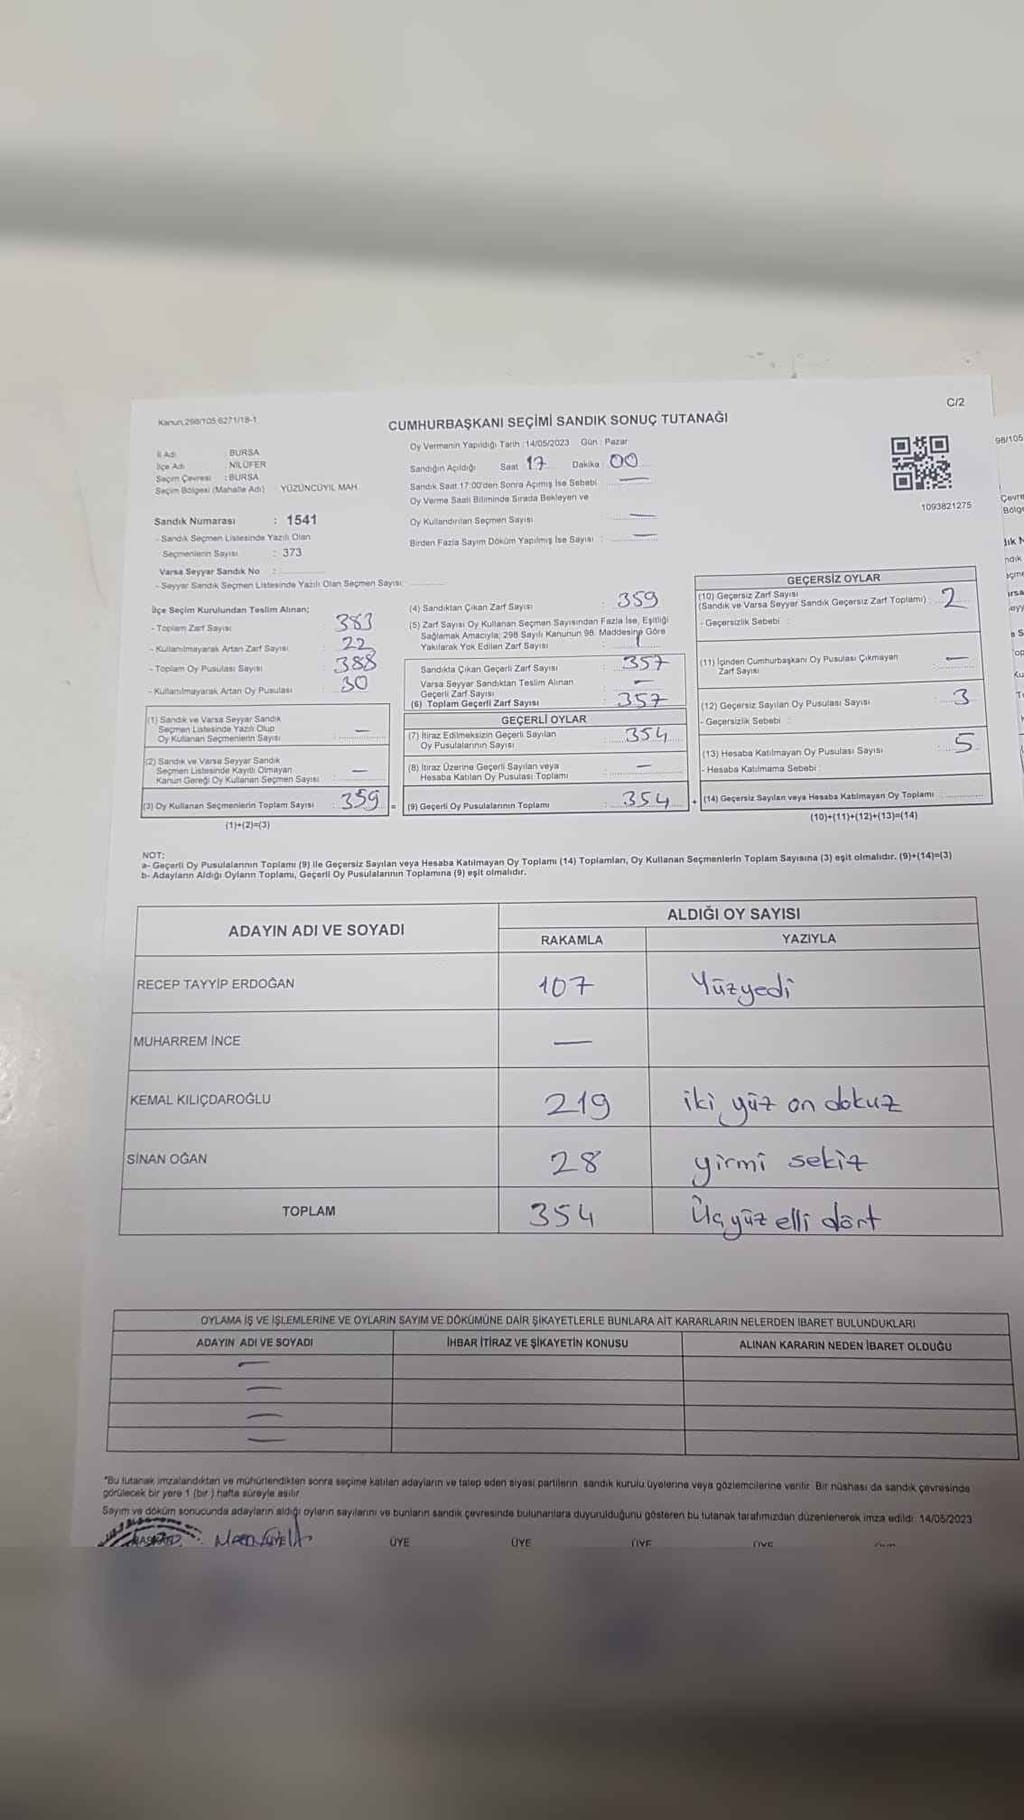 Kanun,298/105 6271/18-1
C/2
CUMHURBAŞKANI SEÇİMİ SANDIK SONUÇ TUTANAĞI
İl Adı : BURSA
İlçe Adı : NİLÜFER
Seçim Çevresi : BURSA
Seçim Bölgesi (Mahalle Adı) YÜZÜNCÜYIL MAH.
Sandık Numarası : 1541
- Sandık Seçmen Listesinde Yazılı Olan
Seçmenlerin Sayısı : 373
Varsa Seyyar Sandık No :
- Seyyar Sandık Seçmen Listesinde Yazılı Olan Seçmen Sayısı:
Oy Vermenin Yapıldığı Tarih : 14/05/2023 Gün : Pazar
Sandığın Açıldığı Saat 17 Dakika 00
Sandık Saat 17:00'den Sonra Açımış İse Sebebi : —
Oy Verme Saati Bitiminde Sırada Bekleyen ve
Oy Kullandırılan Seçmen Sayısı : —
Birden Fazla Sayım Döküm Yapılmış İse Sayısı : —
1093821275
İlçe Seçim Kurulundan Teslim Alınan;
- Toplam Zarf Sayısı : 383
- Kullanılmayarak Artan Zarf Sayısı : 22
- Toplam Oy Pusulası Sayısı : 388
- Kullanılmayarak Artan Oy Pusulası : 30
(1) Sandık ve Varsa Seyyar Sandık
Seçmen Listesinde Yazılı Olup
Oy Kullanan Seçmenlerin Sayısı : —
(2) Sandık ve Varsa Seyyar Sandık
Seçmen Listesinde Kayıtlı Olmayan
Kanun Gereği Oy Kullanan Seçmen Sayısı : —
(3) Oy Kullanan Seçmenlerin Toplam Sayısı : 359 =
(1)+(2)=(3)
(4) Sandıktan Çıkan Zarf Sayısı : 359
(5) Zarf Sayısı Oy Kullanan Seçmen Sayısından Fazla İse, Eşitliği
Sağlamak Amacıyla; 298 Sayılı Kanunun 98. Maddesine Göre
Yakılarak Yok Edilen Zarf Sayısı :
Sandıkta Çıkan Geçerli Zarf Sayısı : 357
Varsa Seyyar Sandıktan Teslim Alınan
Geçerli Zarf Sayısı : —
(6) Toplam Geçerli Zarf Sayısı : 357
GEÇERLİ OYLAR
(7) İtiraz Edilmeksizin Geçerli Sayılan
Oy Pusulalarının Sayısı : 354
(8) İtiraz Üzerine Geçerli Sayılan veya
Hesaba Katılan Oy Pusulası Toplamı : —
(9) Geçerli Oy Pusulalarının Toplamı : 354 +
GEÇERSİZ OYLAR
(10) Geçersiz Zarf Sayısı
(Sandık ve Varsa Seyyar Sandık Geçersiz Zarf Toplamı) : 2
- Geçersizlik Sebebi :
(11) İçinden Cumhurbaşkanı Oy Pusulası Çıkmayan
Zarf Sayısı : —
(12) Geçersiz Sayılan Oy Pusulası Sayısı : 3
- Geçersizlik Sebebi :
(13) Hesaba Katılmayan Oy Pusulası Sayısı : 5
- Hesaba Katılmama Sebebi :
(14) Geçersiz Sayılan veya Hesaba Katılmayan Oy Toplamı
(10)+(11)+(12)+(13)=(14)
NOT:
a- Geçerli Oy Pusulalarının Toplamı (9) ile Geçersiz Sayılan veya Hesaba Katılmayan Oy Toplamı (14) Toplamları, Oy Kullanan Seçmenlerin Toplam Sayısına (3) eşit olmalıdır. (9)+(14)=(3)
b- Adayların Aldığı Oyların Toplamı, Geçerli Oy Pusulalarının Toplamına (9) eşit olmalıdır.
ADAYIN ADI VE SOYADI
ALDIĞI OY SAYISI
RAKAMLA YAZIYLA
RECEP TAYYİP ERDOĞAN 107 Yüzyedi
MUHARREM İNCE —
KEMAL KILIÇDAROĞLU 219 iki yüz on dokuz
SİNAN OĞAN 28 yirmi sekiz
TOPLAM 354 Üçyüz elli dört
OYLAMA İŞ VE İŞLEMLERİNE VE OYLARIN SAYIM VE DÖKÜMÜNE DAİR ŞİKAYETLERLE BUNLARA AİT KARARLARIN NELERDEN İBARET BULUNDUKLARI
ADAYIN ADI VE SOYADI İHBAR İTİRAZ VE ŞİKAYETİN KONUSU ALINAN KARARIN NEDEN İBARET OLDUĞU
—
—
—
—
*Bu tutanak imzalandıktan ve mühürlendikten sonra seçime katılan adayların ve talep eden siyasi partilerin sandık kurulu üyelerine veya gözlemcilerine verilir. Bir nüshası da sandık çevresinde
görülecek bir yere 1 (bir ) hafta süreyle asılır.
Sayım ve döküm sonucunda adayların aldığı oyların sayılarını ve bunların sandık çevresinde bulunanlara duyurulduğunu gösteren bu tutanak tarafımızdan düzenlenerek imza edildi. 14/05/2023
ÜYE ÜYE ÜYE ÜYE